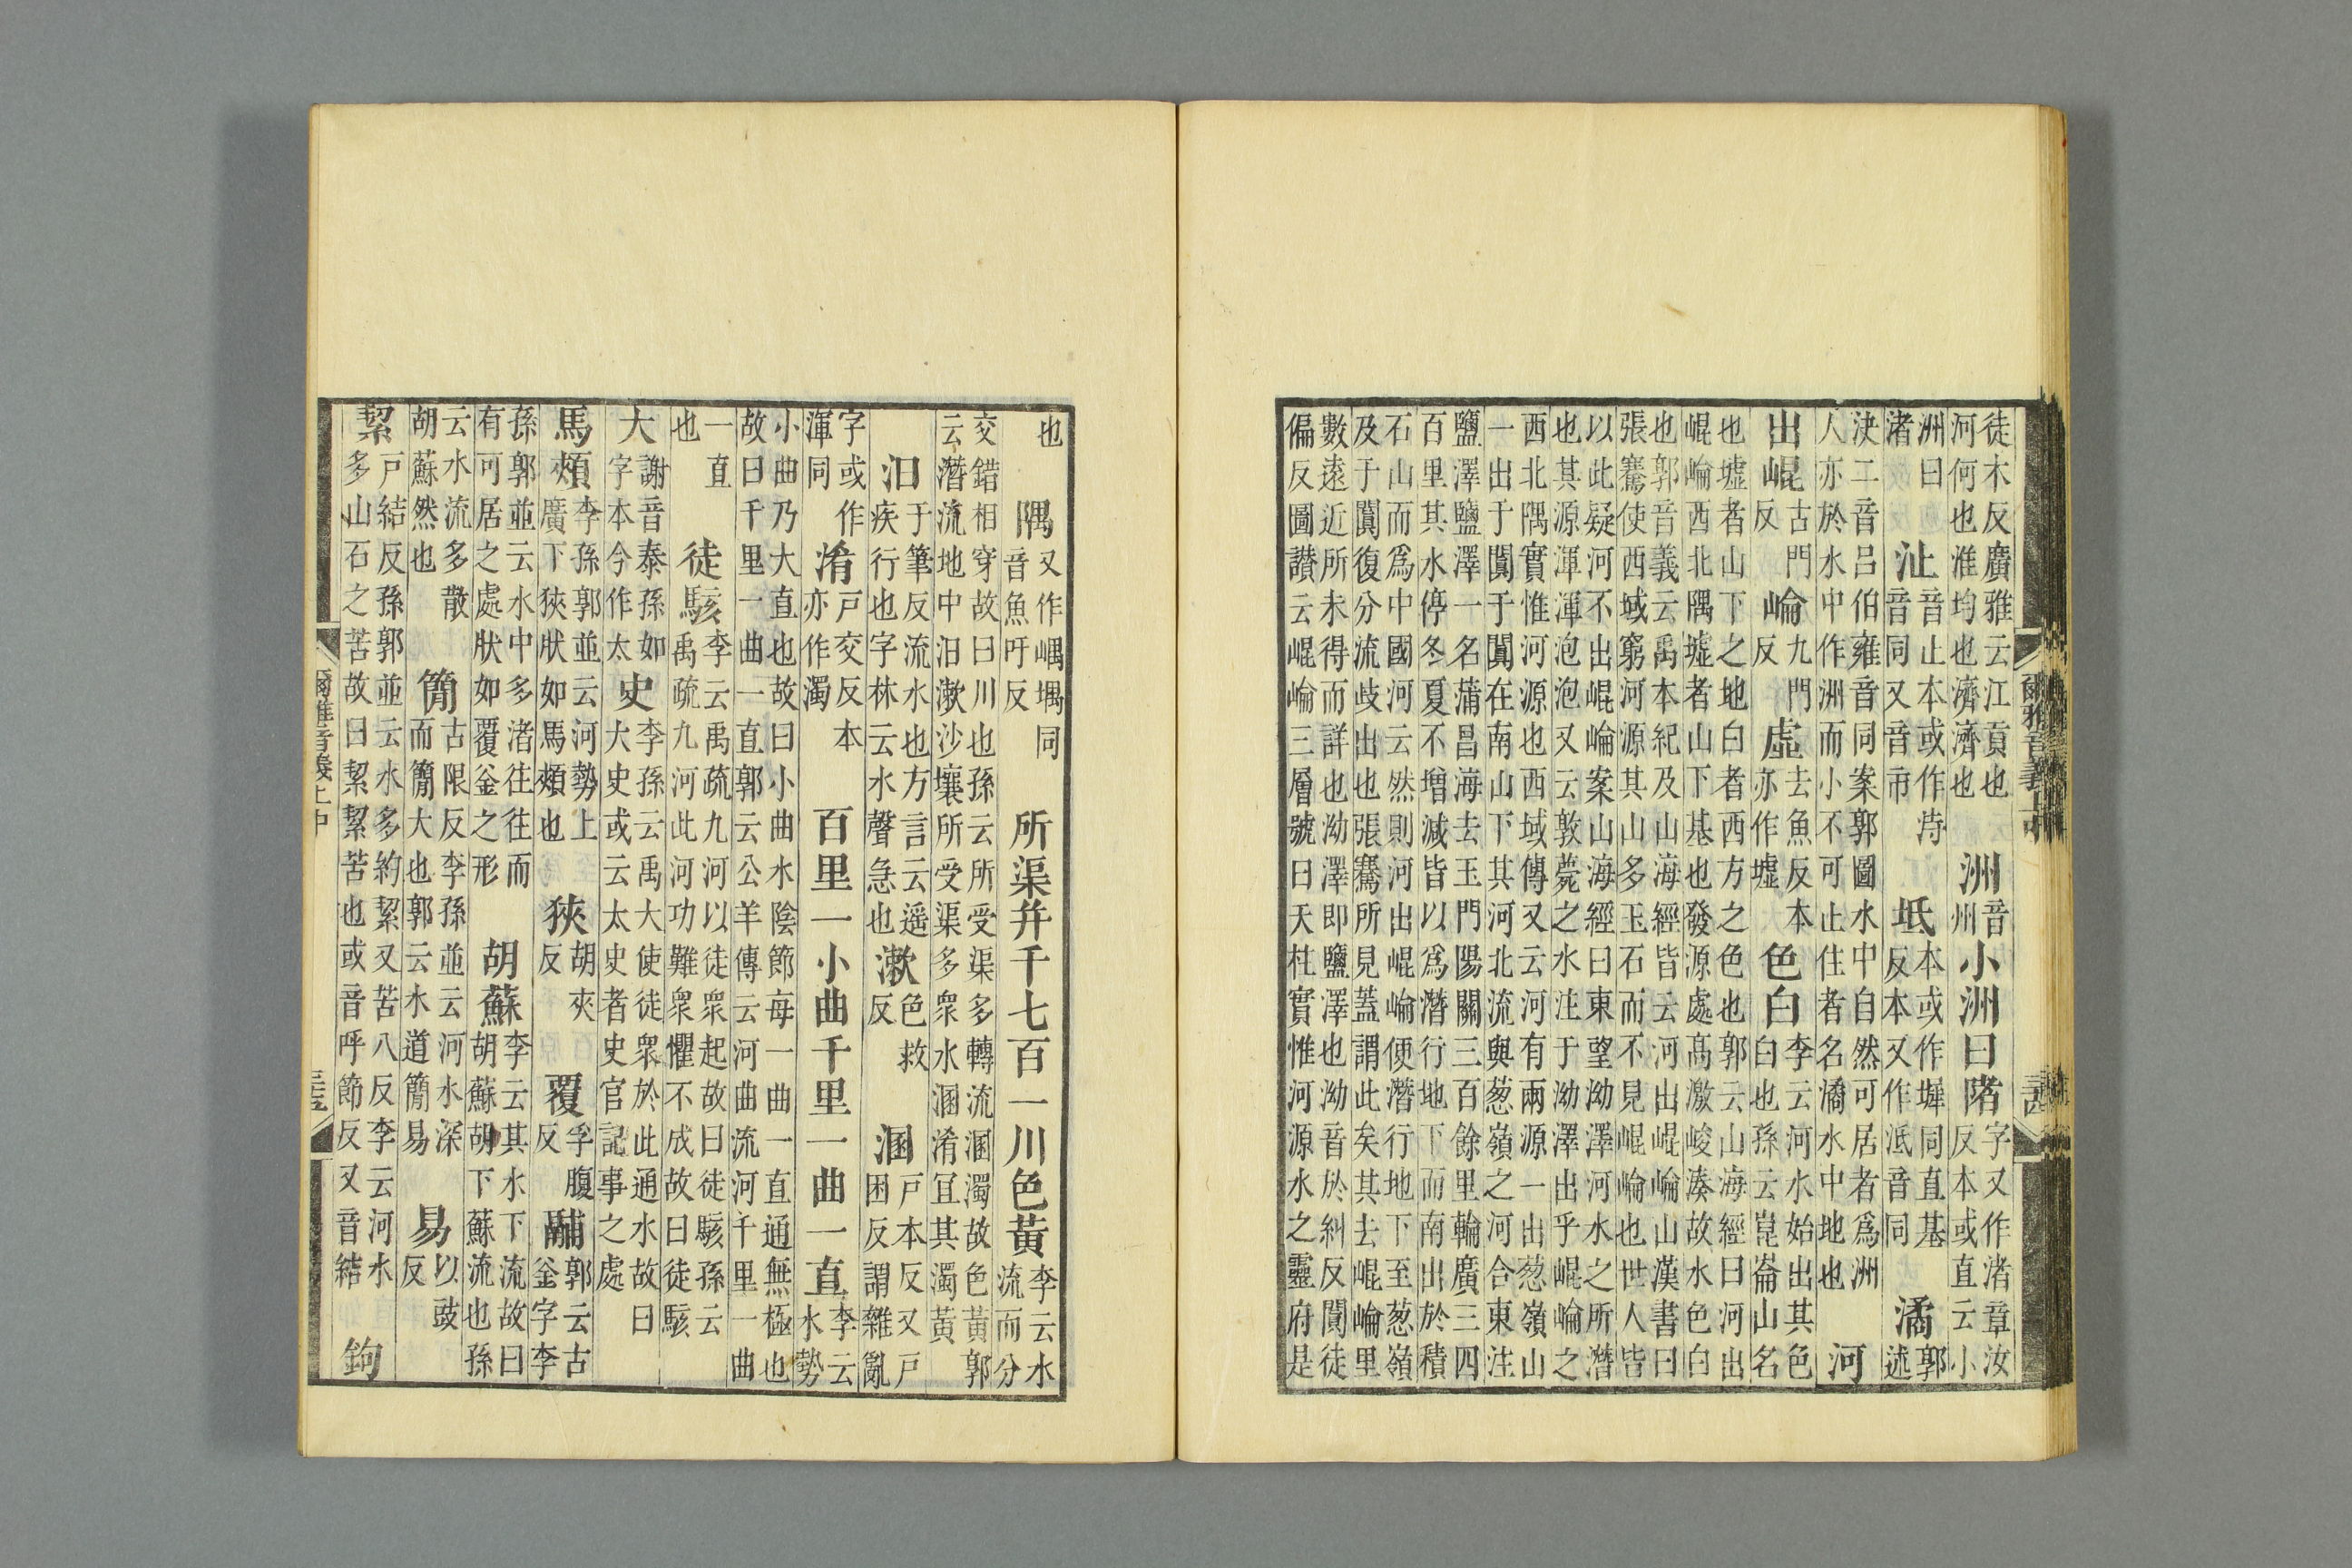 徒木反廣雅云江貢也河何也淮均也濟濟也洲音州小洲曰陼字又作渚章汝反本或直云小
洲曰渚沚音止本或作洔音同又音市坻本或作墀同直基反本又作泜音同潏郭述
決二音呂伯雍音同案郭圖水中自然可居者爲洲人亦於水中作洲而小不可止住者名潏水中地也河
出崐古門反崘九門反虛去魚反本亦作墟色白李云河水始出其色白也孫云崑崙山名
也墟者山下之地白者西方之色也郭云山海經曰河出崐崘西北隅墟者山下基也發源處高激峻湊故水色白
也郭音義云禹本紀及山海經皆云河出崐崘山漢書曰張騫使西域窮河源其山多玉石而不見崐崘也世人皆
以此疑河不出崐崘案山海經曰東望泑澤河水之所潛也其源渾渾泡泡又云敦薨之水注于泑澤出乎崐崘之
西北隅實惟河源也西域傳又云河有兩源一出葱嶺山一出于闐于闐在南山下其河北流與葱嶺之河合東注
鹽澤鹽澤一名蒲昌海去玉門陽關三百餘里輪廣三四百里其水停冬夏不增減皆以爲潛行地下而南出於積
石山而爲中國河云然則河出崐崘便潛行地下至葱嶺及于闐復分流歧出也張騫所見蓋謂此矣其去崐崘里
數遠近所未得而詳也泑澤即鹽澤也泑音於糾反闐徒偏反圖讚云崐崘三層號曰天柱實惟河源水之靈府是
爾雅音義上中
也隅又作嵎堣同音魚吁反所渠并千七百一川色黃李云水流而分
交錯相穿故曰川也孫云所受渠多轉流溷濁故色黃郭云潛流地中汩漱沙壤所受渠多衆水溷淆宜其濁黃
汩于筆反流水也方言云遥疾行也字林云水聲急也漱色救反溷戶本反又戶困反謂雜亂
字或作渾同淆戶交反本亦作濁百里一小曲千里一曲一直李云水勢
小曲乃大直也故曰小曲水陰節每一曲一直通無極也故曰千里一曲一直郭云公羊傳云河曲流河千里一曲
一直也徒駭李云禹疏九河以徒衆起故曰徒駭孫云禹疏九河此河功難衆懼不成故曰徒駭
大謝音泰孫如字本今作太史李孫云禹大使徒衆於此通水故曰大史或云太史者史官記事之處
馬頰李孫郭並云河勢上廣下狹狀如馬頰也狹胡夾反覆孚腹反鬴郭云古釜字李
孫郭並云水中多渚往往而有可居之處狀如覆釜之形胡蘇李云其水下流故曰胡蘇胡下蘇流也孫
云水流多散胡蘇然也簡古限反李孫並云河水深而簡大也郭云水道簡易易以豉反
絜戶結反孫郭並云水多約絜又苦八反李云河水多山石之苦故曰絜絜苦也或音呼節反又音結鉤
爾雅音義上中